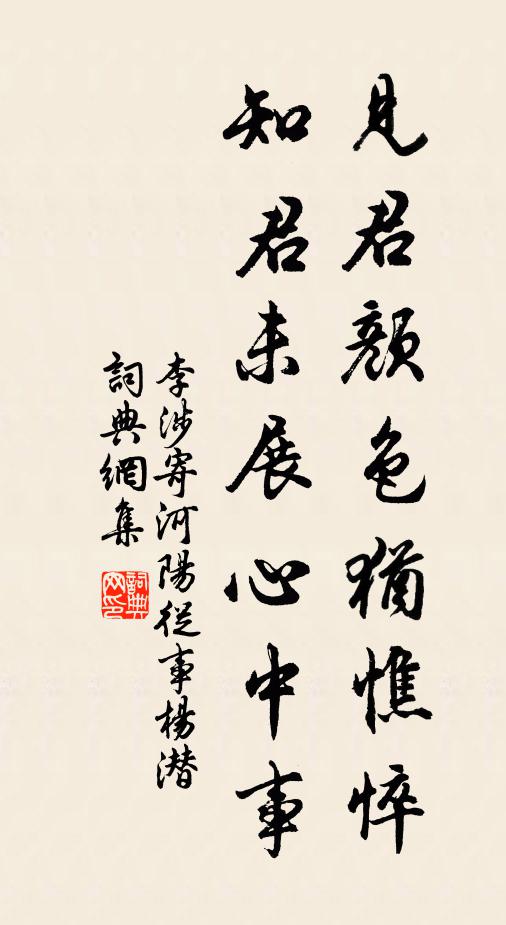 見君顏色猶憔悴
知君未展心中事
李涉寄河陽從事楊潛
詞典網集
詞典网印